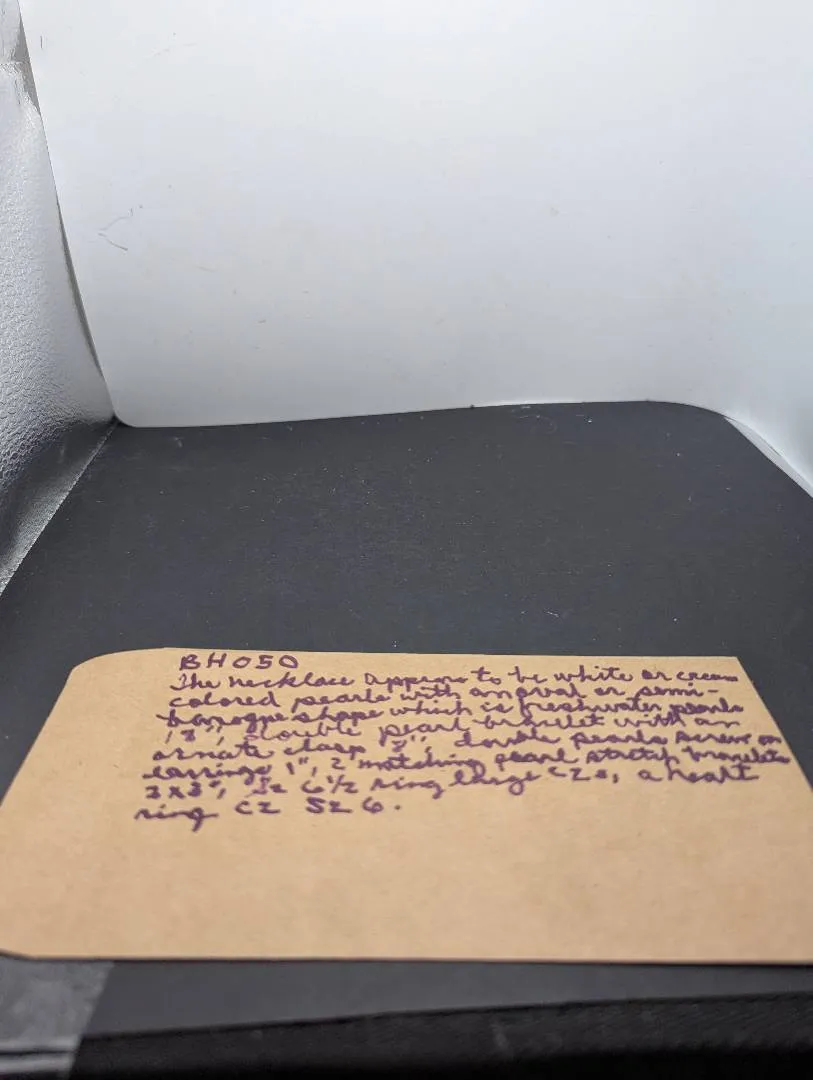 BH050
The necklace appears to be white or cream
colored pearls with an oval or semi-
baroque shape which is freshwater pearls
18", double pearl bracelet with an
ornate clasp 8", double pearls screw on
earrings 1", 2 matching pearl stretch bracelets
3x3", Sz 6 1/2 ring large CZs, a heart
ring CZ Sz 6.